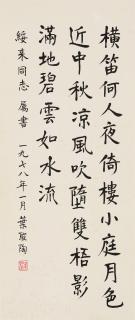 橫笛何人夜倚樓小庭月色
近中秋涼風吹墮雙梧影
滿地碧雲如水流
綏來同志屬書 一九七八年一月 葉聖陶